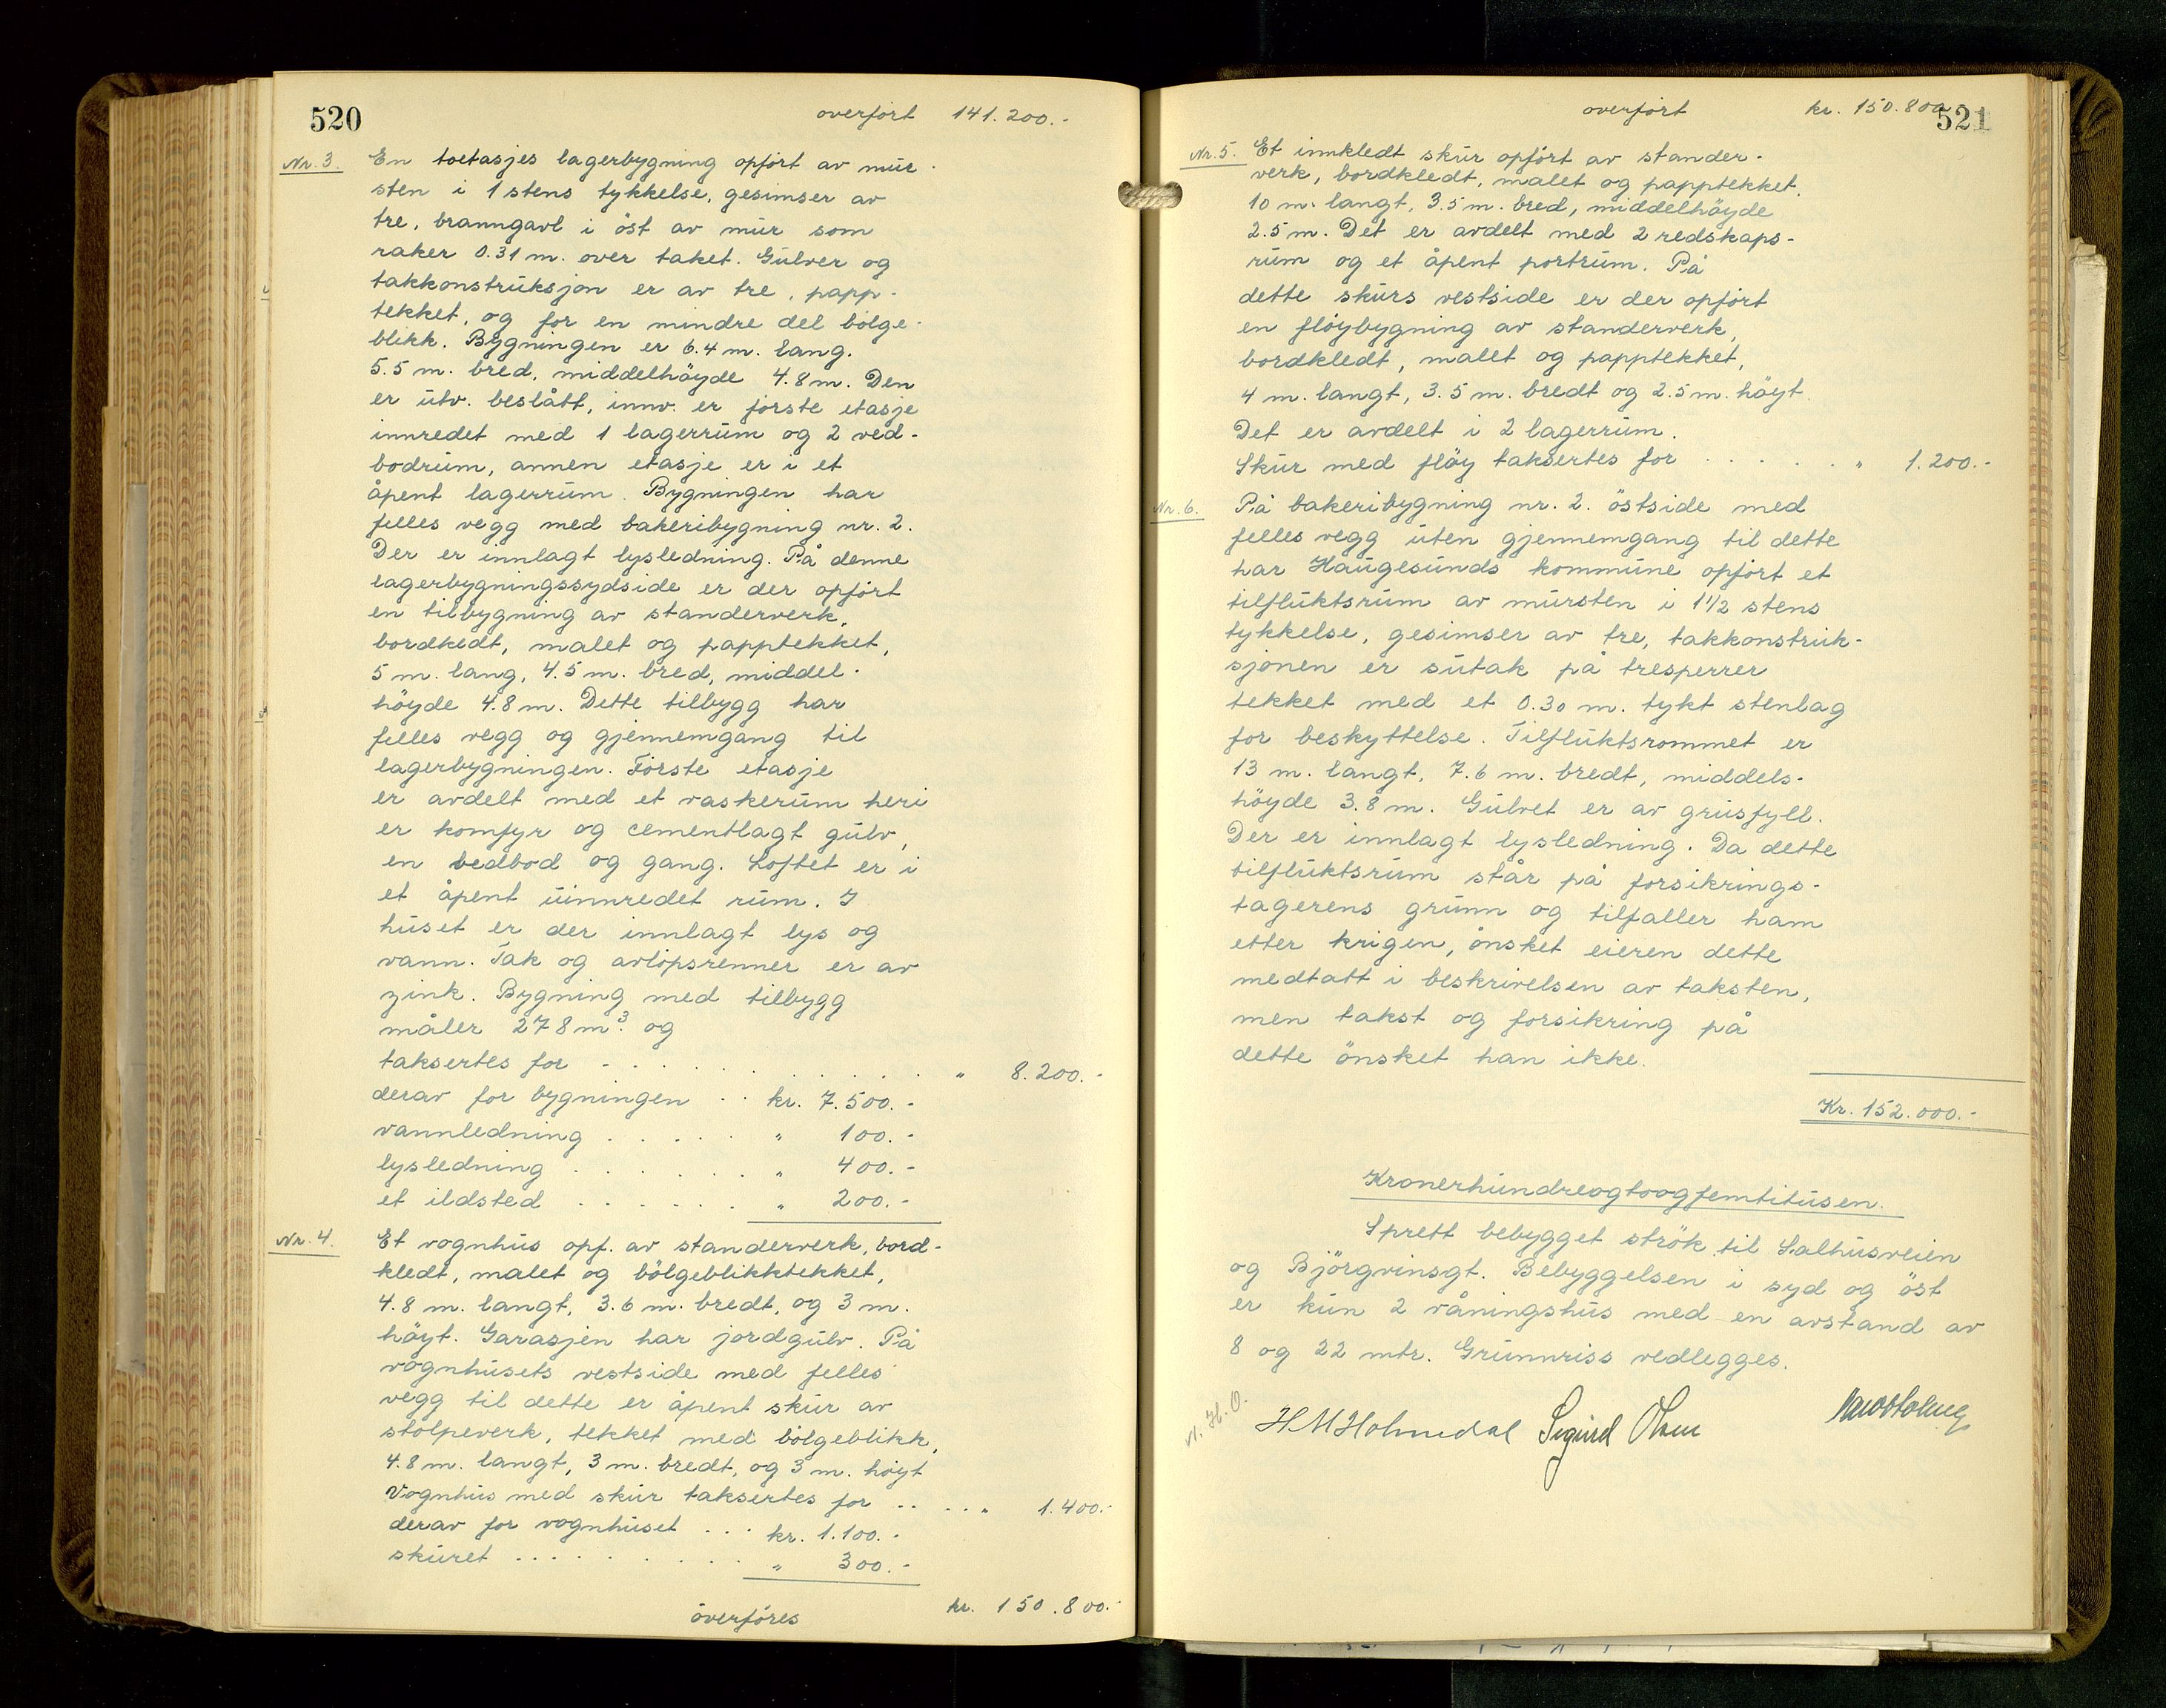 520
overført 141.200.-
Nr. 3. En toetasjes lagerbygning opført av mur-
sten i 1 stens tykkelse, gesimser av
tre, branngavl i öst av mur som
raker 0.31 m. over taket. Gulver og
takkonstruksjon er av tre, papp-
tekket, og for en mindre del bölge-
blikk. Bygningen er 6.4 m. lang.
5.5 m. bred, middelhöyde 4.8 m. Den
er utv. beslått, innv. er förste etasje
innredet med 1 lagerrum og 2 ved-
bodrum, annen etasje er i et
åpent lagerrum. Bygningen har
felles vegg med bakeribygning nr. 2.
Der er innlagt lysledning. På denne
lagerbygningssydside er der opfört
en tilbygning av standerverk,
bordkedt, malet og papptekket,
5 m. lang, 4.5 m. bred, middel-
höyde 4.8 m. Dette tilbygg har
felles vegg og gjennemgang til
lagerbygningen. Förste etasje
er avdelt med et vaskerum heri
er komfyr og cementlagt gulv,
en vedbod og gang. Loftet er i
et åpent uinnredet rum. I
huset er der innlagt lys og
vann. Tak og avlöpsrenner er av
zink. Bygning med tilbygg
måler 278 m³. og
taksertes for - . . . . . . . . . . " 8.200.-
derav for bygningen . . kr. 7.500.-
vannledning . . . . . " 100.-
lysledning . . . . . . " 400.-
et ildsted . . . . . . " 200.-
Nr. 4. Et vognhus opf. av standerverk, bord-
kledt, malet og bölgeblikktekket,
4.8 m. langt, 3.6 m. bredt, og 3 m.
höyt. Garasjen har jordgulv. På
vognhusets vestside med felles
vegg til dette er åpent skur av
stolpeverk, tekket med bölgeblikk,
4.8 m. langt, 3 m. bredt, og 3 m. höyt
Vognhus med skur taksertes for . . . . " 1.400.-
derav for vognhuset . . . kr. 1.100.-
skuret . . . . . . . . . " 300.-
överföres kr. 150.800.-
521
overfört kr. 150.800
Nr. 5. Et innkledt skur opfört av stander-
verk, bordkledt, malet og papptekket.
10 m. langt, 3.5 m. bred, middelhöyde
2.5 m. Det er avdelt med 2 redskaps-
rum og et åpent portrum. På
dette skurs vestside er der opfört
en flöybygning av standerverk,
bordkledt, malet og papptekket,
4 m. langt, 3.5 m. bredt og 2.5 m. höyt.
Det er avdelt i 2 lagerrum.
Skur med flöy taksertes for . . . . . " 1.200.-
Nr. 6. På bakeribygning nr. 2. östside med
felles vegg uten gjennemgang til dette
har Haugesunds kommune opfört et
tilfluktsrum av mursten i 1 1/2 stens
tykkelse, gesimser av tre, takkonstruk-
sjonen er sutak på tresperrer
tekket med et 0.30 m. tykt stenlag
for beskyttelse. Tilfluktsrommet er
13 m. langt, 7.6 m. bredt, middels-
höyde 3.8 m. Gulvet er av grusfyll.
Der er innlagt lysledning. Da dette
tilfluktsrum står på forsikrings-
tagerens grunn og tilfaller ham
etter krigen, önsket eieren dette
medtatt i beskrivelsen av taksten,
men takst og forsikring på
dette önsket han ikke.
Kr. 152.000.-
Kronerhundreogtoogfemtitusen.
Sprett bebygget strök til Salhusveien
og Björgvinsgt. Bebyggelsen i syd og öst
er kun 2 våningshus med en avstand av
8 og 22 mtr. Grunnriss vedlegges.
N. H. O. H M Holmedal Sigurd Olsen